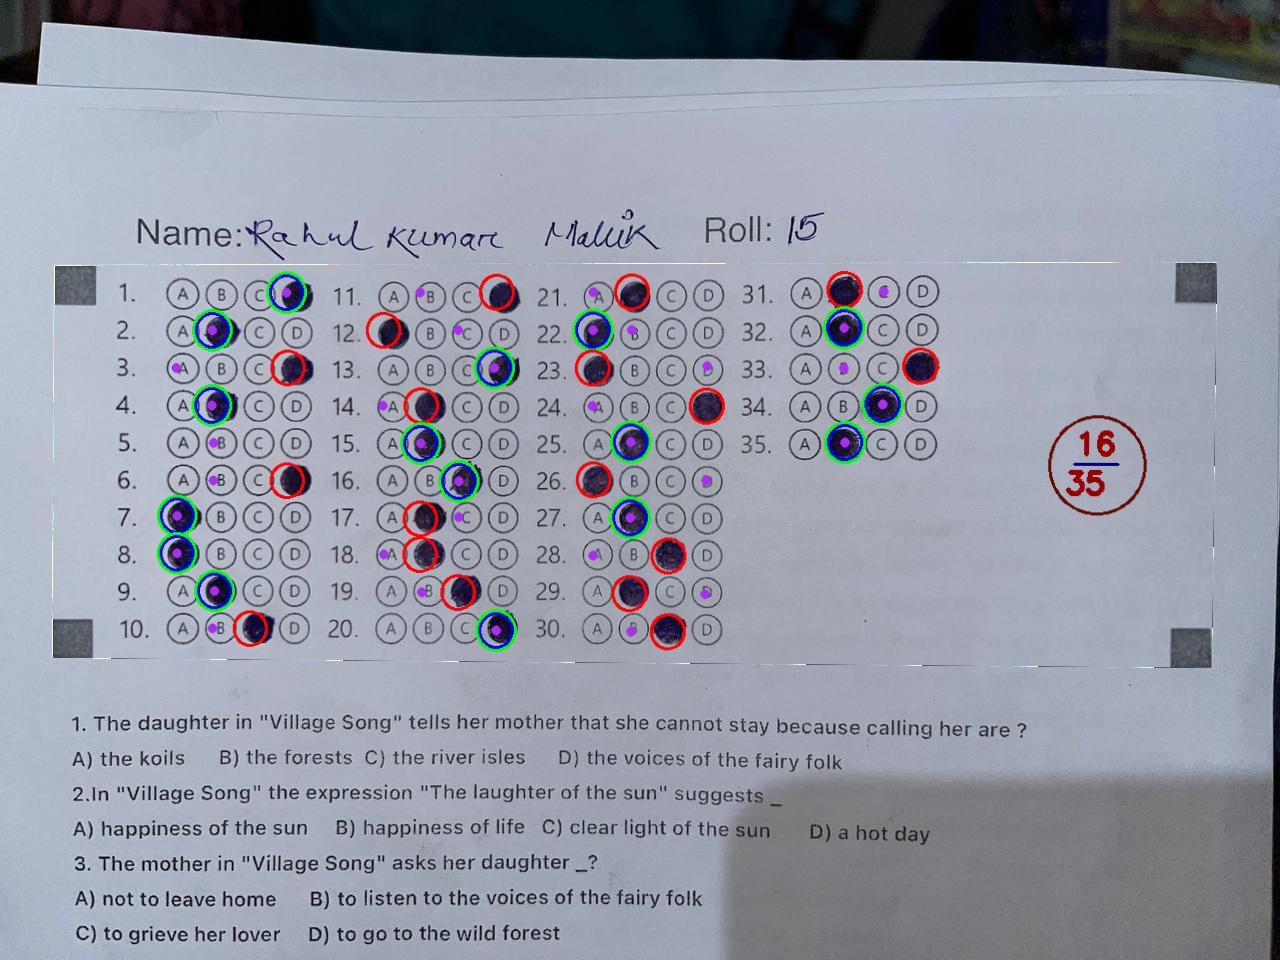 Name: Rahul Kumar Mallik Roll: 15
1. A B C 11. A B C 21. A C D 31. A D
2. A C D 12. B C D 22. B C D 32. A C D
3. A B C 13. A B C 23. B C D 33. A B C
4. A C D 14. A C D 24. A B C 34. A B D
5. A B C D 15. A C D 25. A C D 35. A C D
6. A B C 16. A B D 26. B C D
7. B C D 17. A C D 27. A C D
8. B C D 18. A C D 28. A B D
9. A C D 19. A B D 29. A C D
10. A B D 20. A B C 30. A B D
16
35
1. The daughter in "Village Song" tells her mother that she cannot stay because calling her are ?
A) the koils B) the forests C) the river isles D) the voices of the fairy folk
2.In "Village Song" the expression "The laughter of the sun" suggests _
A) happiness of the sun B) happiness of life C) clear light of the sun D) a hot day
3. The mother in "Village Song" asks her daughter _?
A) not to leave home B) to listen to the voices of the fairy folk
C) to grieve her lover D) to go to the wild forest